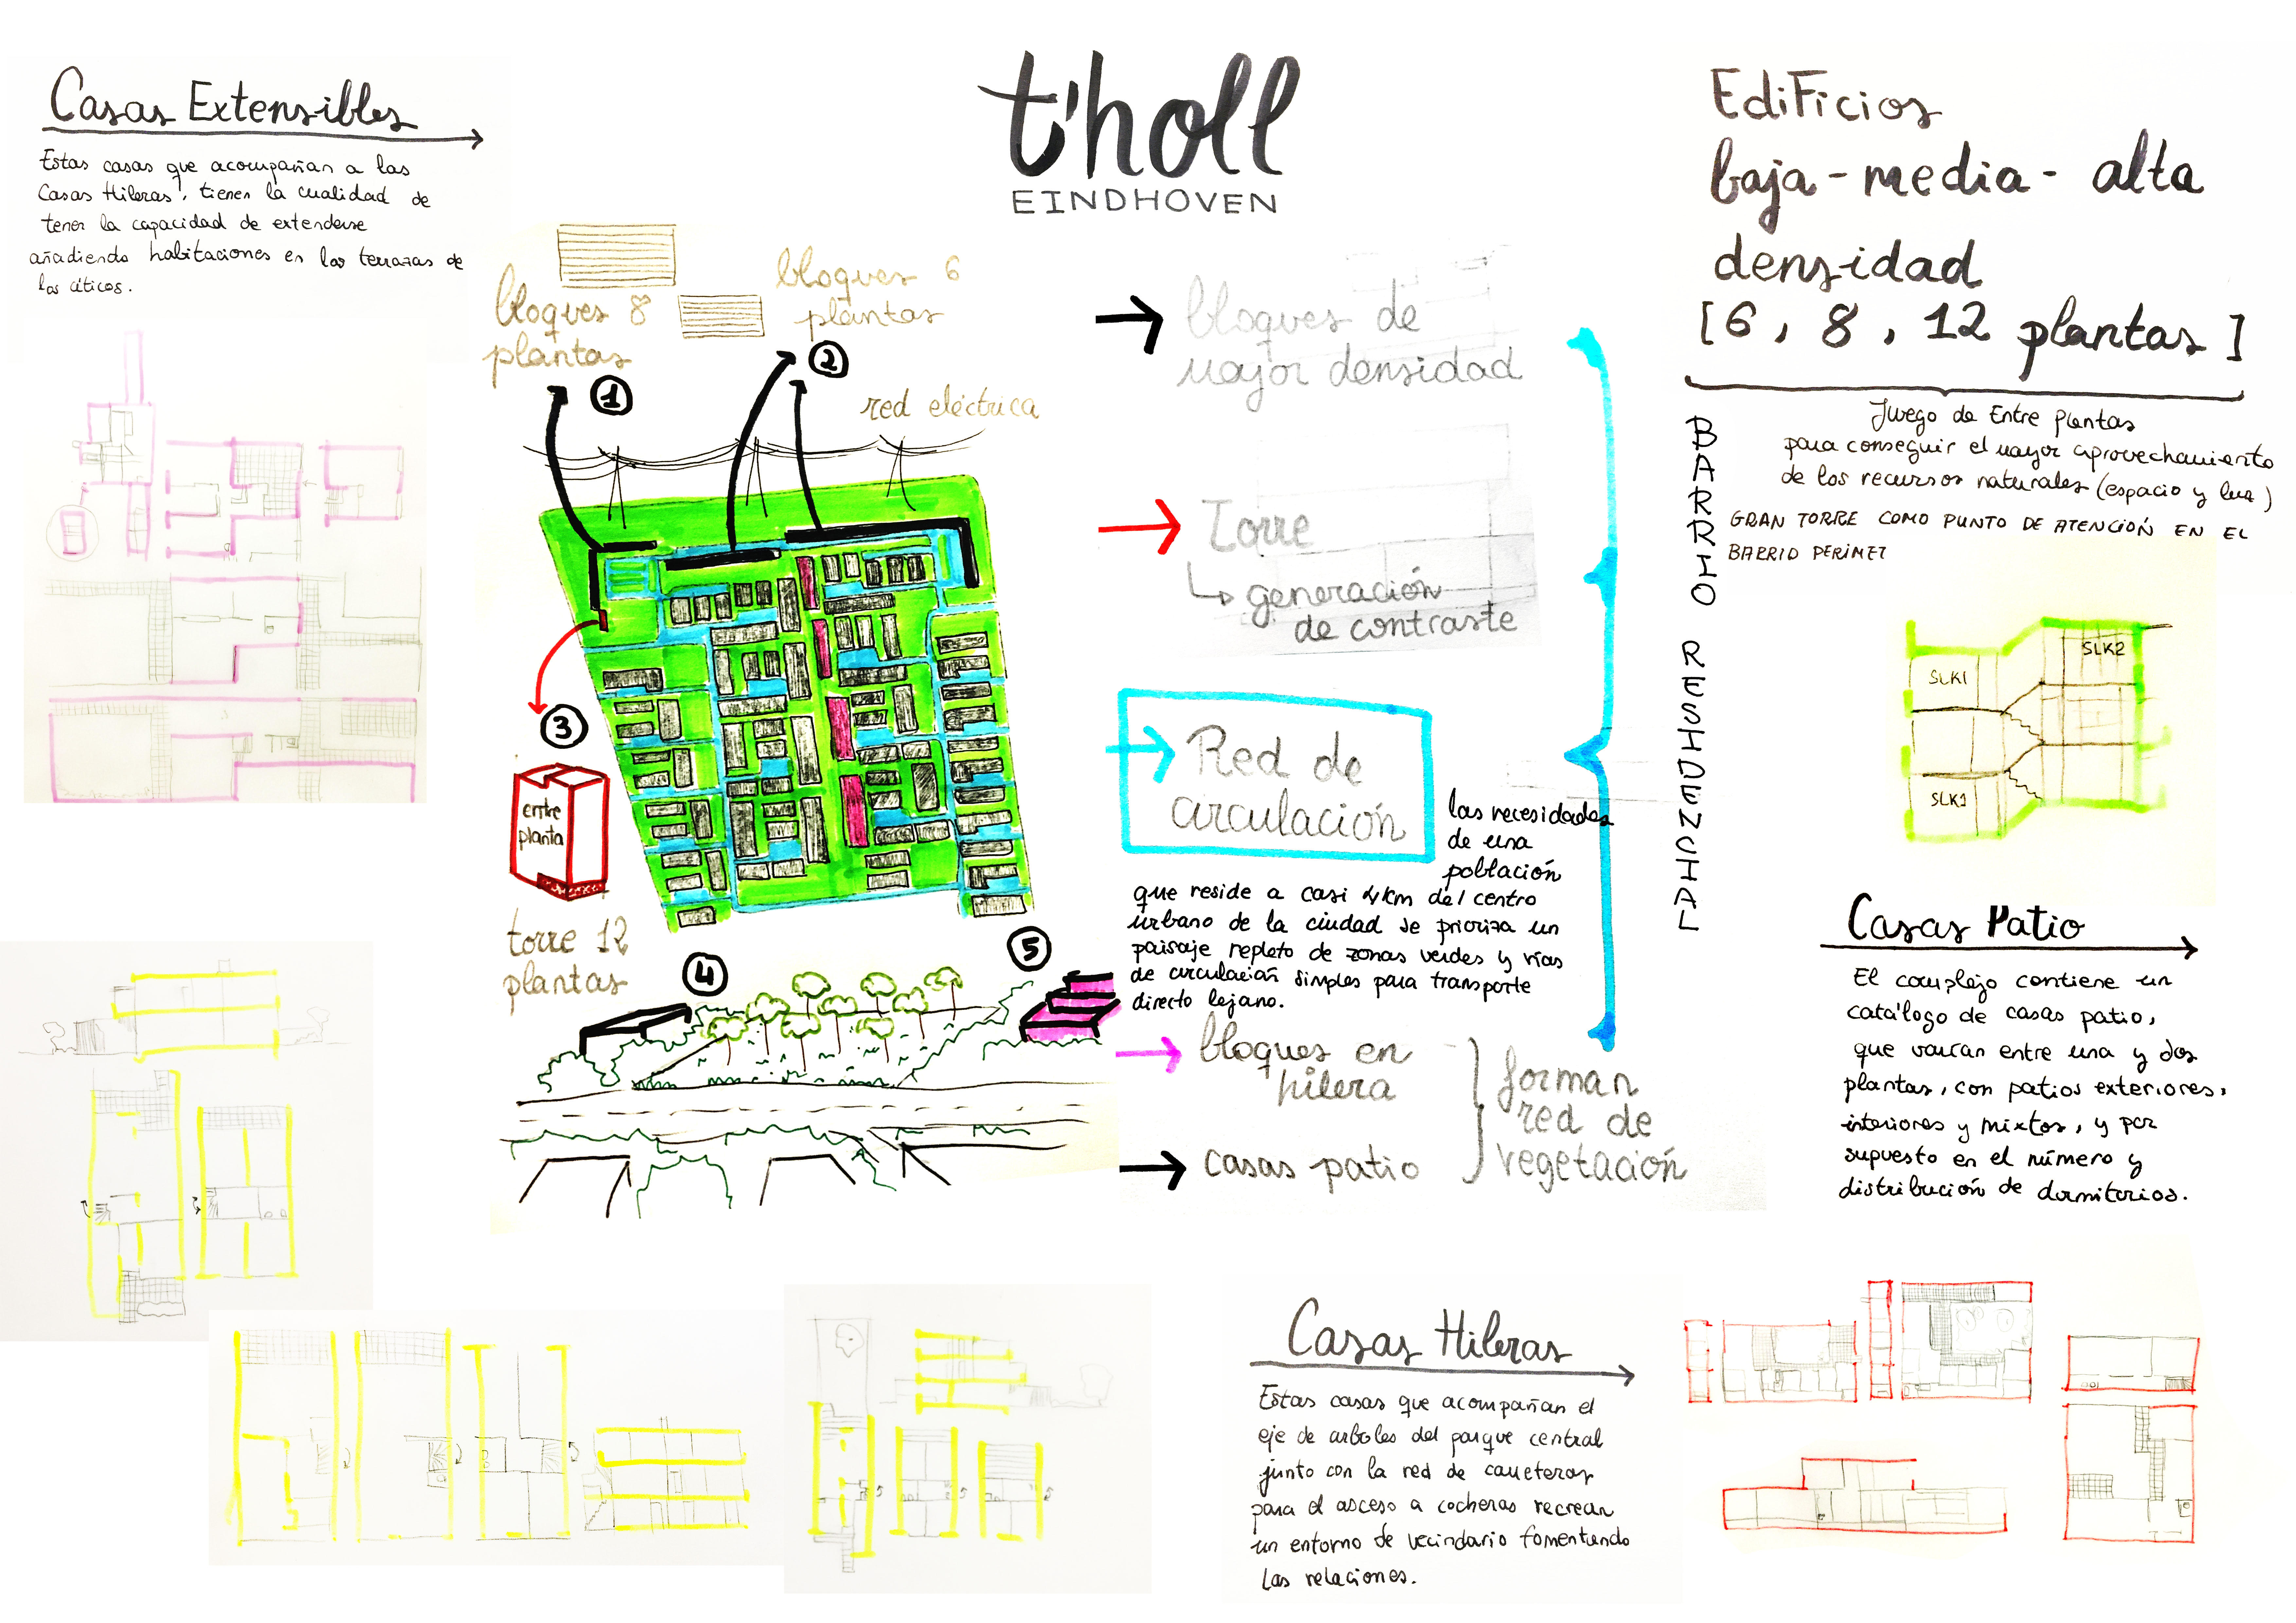 t'holl
EINDHOVEN
Casas Extensibles
Estas casas que acompañan a las
Casas Hileras, tienen la cualidad de
tener la capacidad de extenderse
añadiendo habitaciones en las terrazas de
los áticos.
bloques 8
plantas
1
bloques 6
plantas
2
red eléctrica
3
entre
planta
torre 12
plantas
4
5
bloques de
mayor densidad
Torre
generación
de contraste
Red de
circulación
las necesidades
de una
población
que reside a casi 4km del centro
urbano de la ciudad se prioriza un
paisaje repleto de zonas verdes y vías
de circulación simples para transporte
directo lejano.
bloques en
hilera
casas patio
forman
red de
vegetación
BARRIO RESIDENCIAL
EdiFicios
baja-media- alta
densidad
[6, 8, 12 plantas]
Juego de Entre plantas
para conseguir el mayor aprovechamiento
de los recursos naturales (espacio y luz)
GRAN TORRE COMO PUNTO DE ATENCIÓN EN EL
BARRIO PERIMET
SLK1
SLK2
SLK1
Casas Patio
El complejo contiene un
catálogo de casas patio,
que varían entre una y dos
plantas, con patios exteriores,
interiores y mixtos, y por
supuesto en el número y
distribución de dormitorios.
Casas Hileras
Estas casas que acompañan el
eje de arboles del parque central
junto con la red de carreteras
para el acceso a cocheras recrean
un entorno de vecindario fomentando
las relaciones.